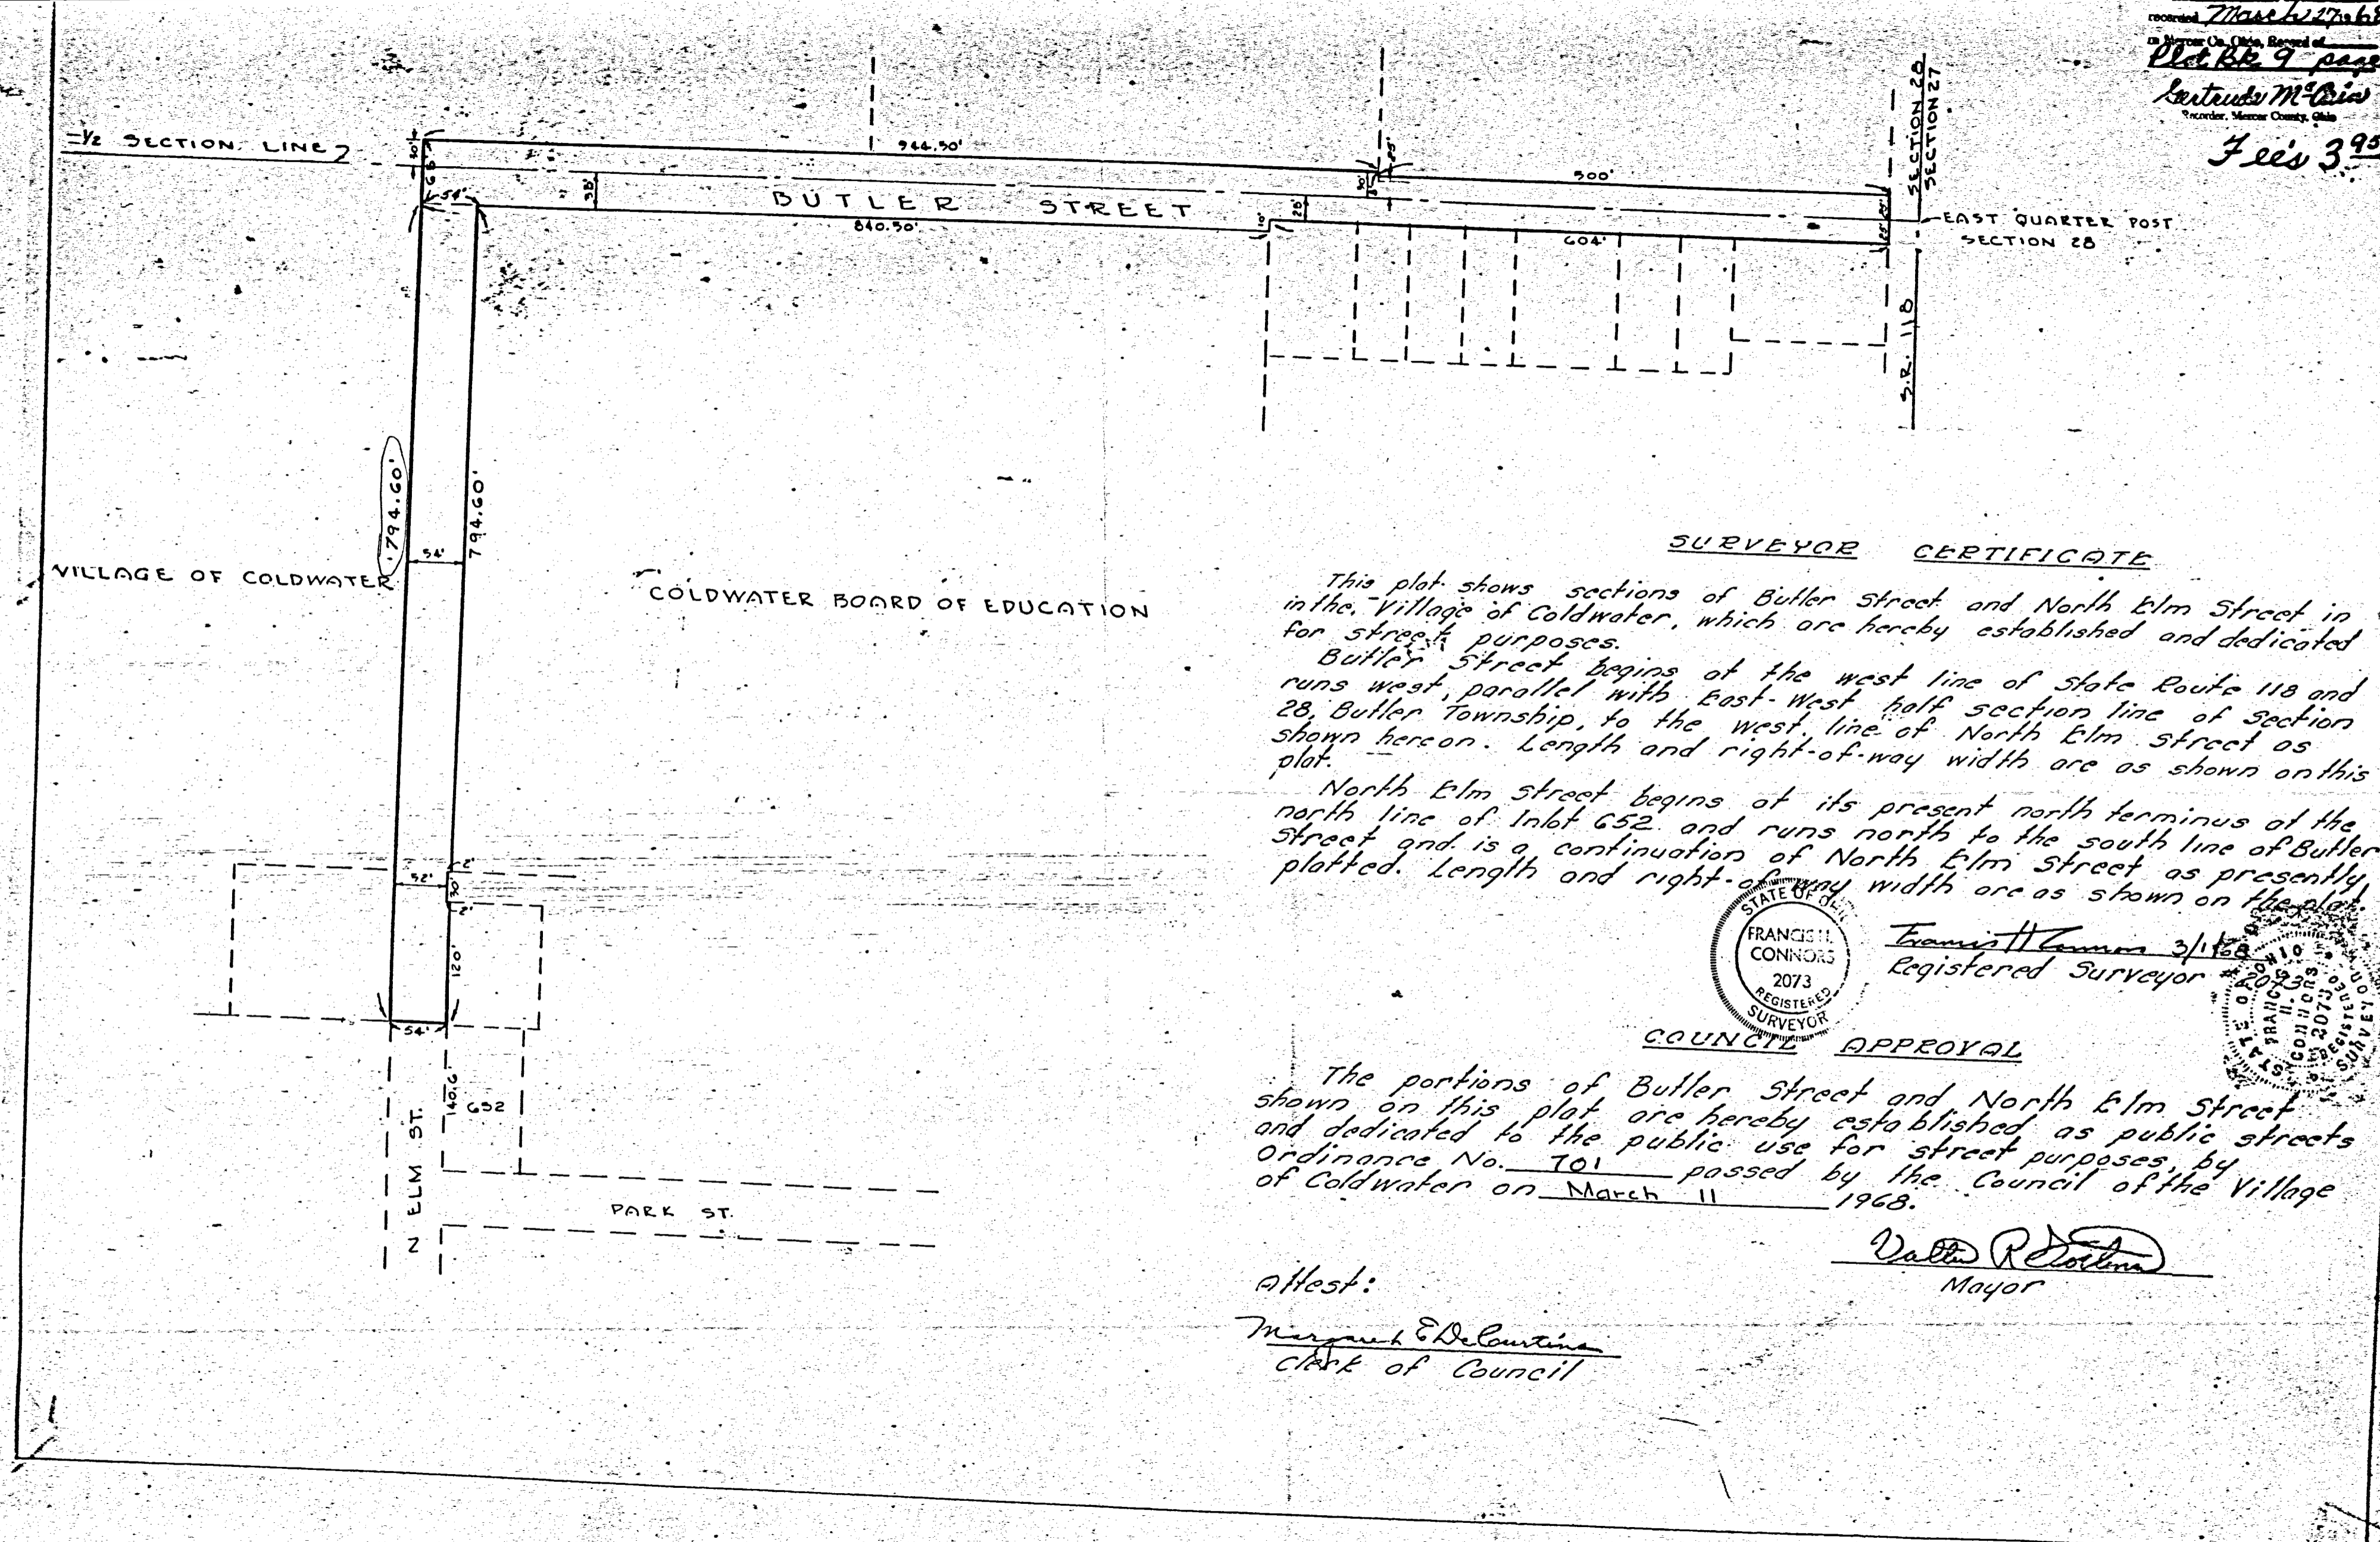 recorded March 27 1968
in Mercer Co. Ohio, Record of
Plat Bk 9 page
Gertrude McCain
Recorder, Mercer County, Ohio
Fees 3.95
1/2 SECTION LINE
SECTION 28
SECTION 27
30'
68'
944.50'
25'
54'
38'
BUTLER STREET
30'
500'
840.50'
10'
28'
604'
25'
25'
EAST QUARTER POST
SECTION 28
S.R. 118
794.60'
794.60'
54'
VILLAGE OF COLDWATER
COLDWATER BOARD OF EDUCATION
2'
52'
30'
2'
120'
54'
140.6'
652
N ELM ST.
PARK ST.
SURVEYOR CERTIFICATE
This plat shows sections of Butler Street and North Elm Street in
in the, Village of Coldwater, which are hereby established and dedicated
for street purposes.
Butler Street begins at the west line of State Route 118 and
runs west, parallel with East-West half section line of Section
28, Butler Township, to the west line of North Elm Street as
shown hereon. Length and right-of-way width are as shown on this
plat.
North Elm Street begins at its present north terminus at the
north line of Inlot 652 and runs north to the south line of Butler
Street and is a continuation of North Elm Street as presently
platted. Length and right-of-way width are as shown on the plat.
STATE OF OHIO
FRANCIS H.
CONNORS
2073
REGISTERED
SURVEYOR
Francis H Connors 3/1/68
Registered Surveyor # 2073
STATE OF OHIO
FRANCIS H.
CONNORS
2073
REGISTERED
SURVEYOR
COUNCIL APPROVAL
The portions of Butler Street and North Elm Street
shown on this plat are hereby established as public streets
and dedicated to the public use for street purposes, by
Ordinance No. 701 passed by the Council of the Village
of Coldwater on March 11 1968.
Mayor
Attest:
Margaret E DeCurtins
Clerk of Council